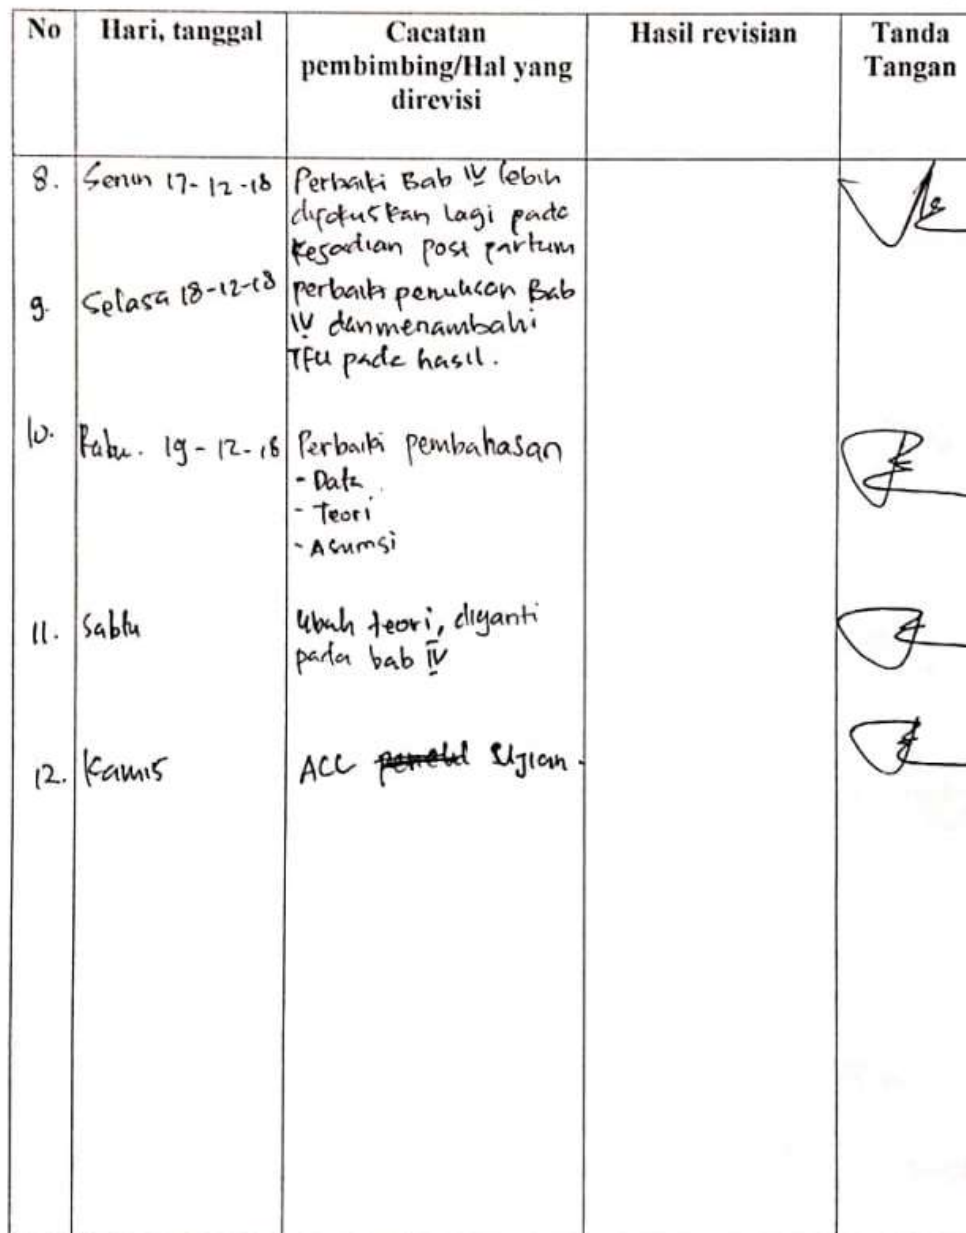 No Hari, tanggal Cacatan Hasil revisian Tanda
pembimbing/Hal yang Tangan
direvisi
8. Senin 17-12-18 Perbaiki Bab IV lebih
difokuskan lagi pada
Kejadian post partum
9. Selasa 18-12-18 perbaiki penulisan Bab
IV dan menambahi
TFU pada hasil.
10. Rabu. 19-12-18 Perbaiki pembahasan
- Data
- Teori
- Asumsi
11. Sabtu Ubah teori, diganti
pada bab IV
12. Kamis ACC Ujian.